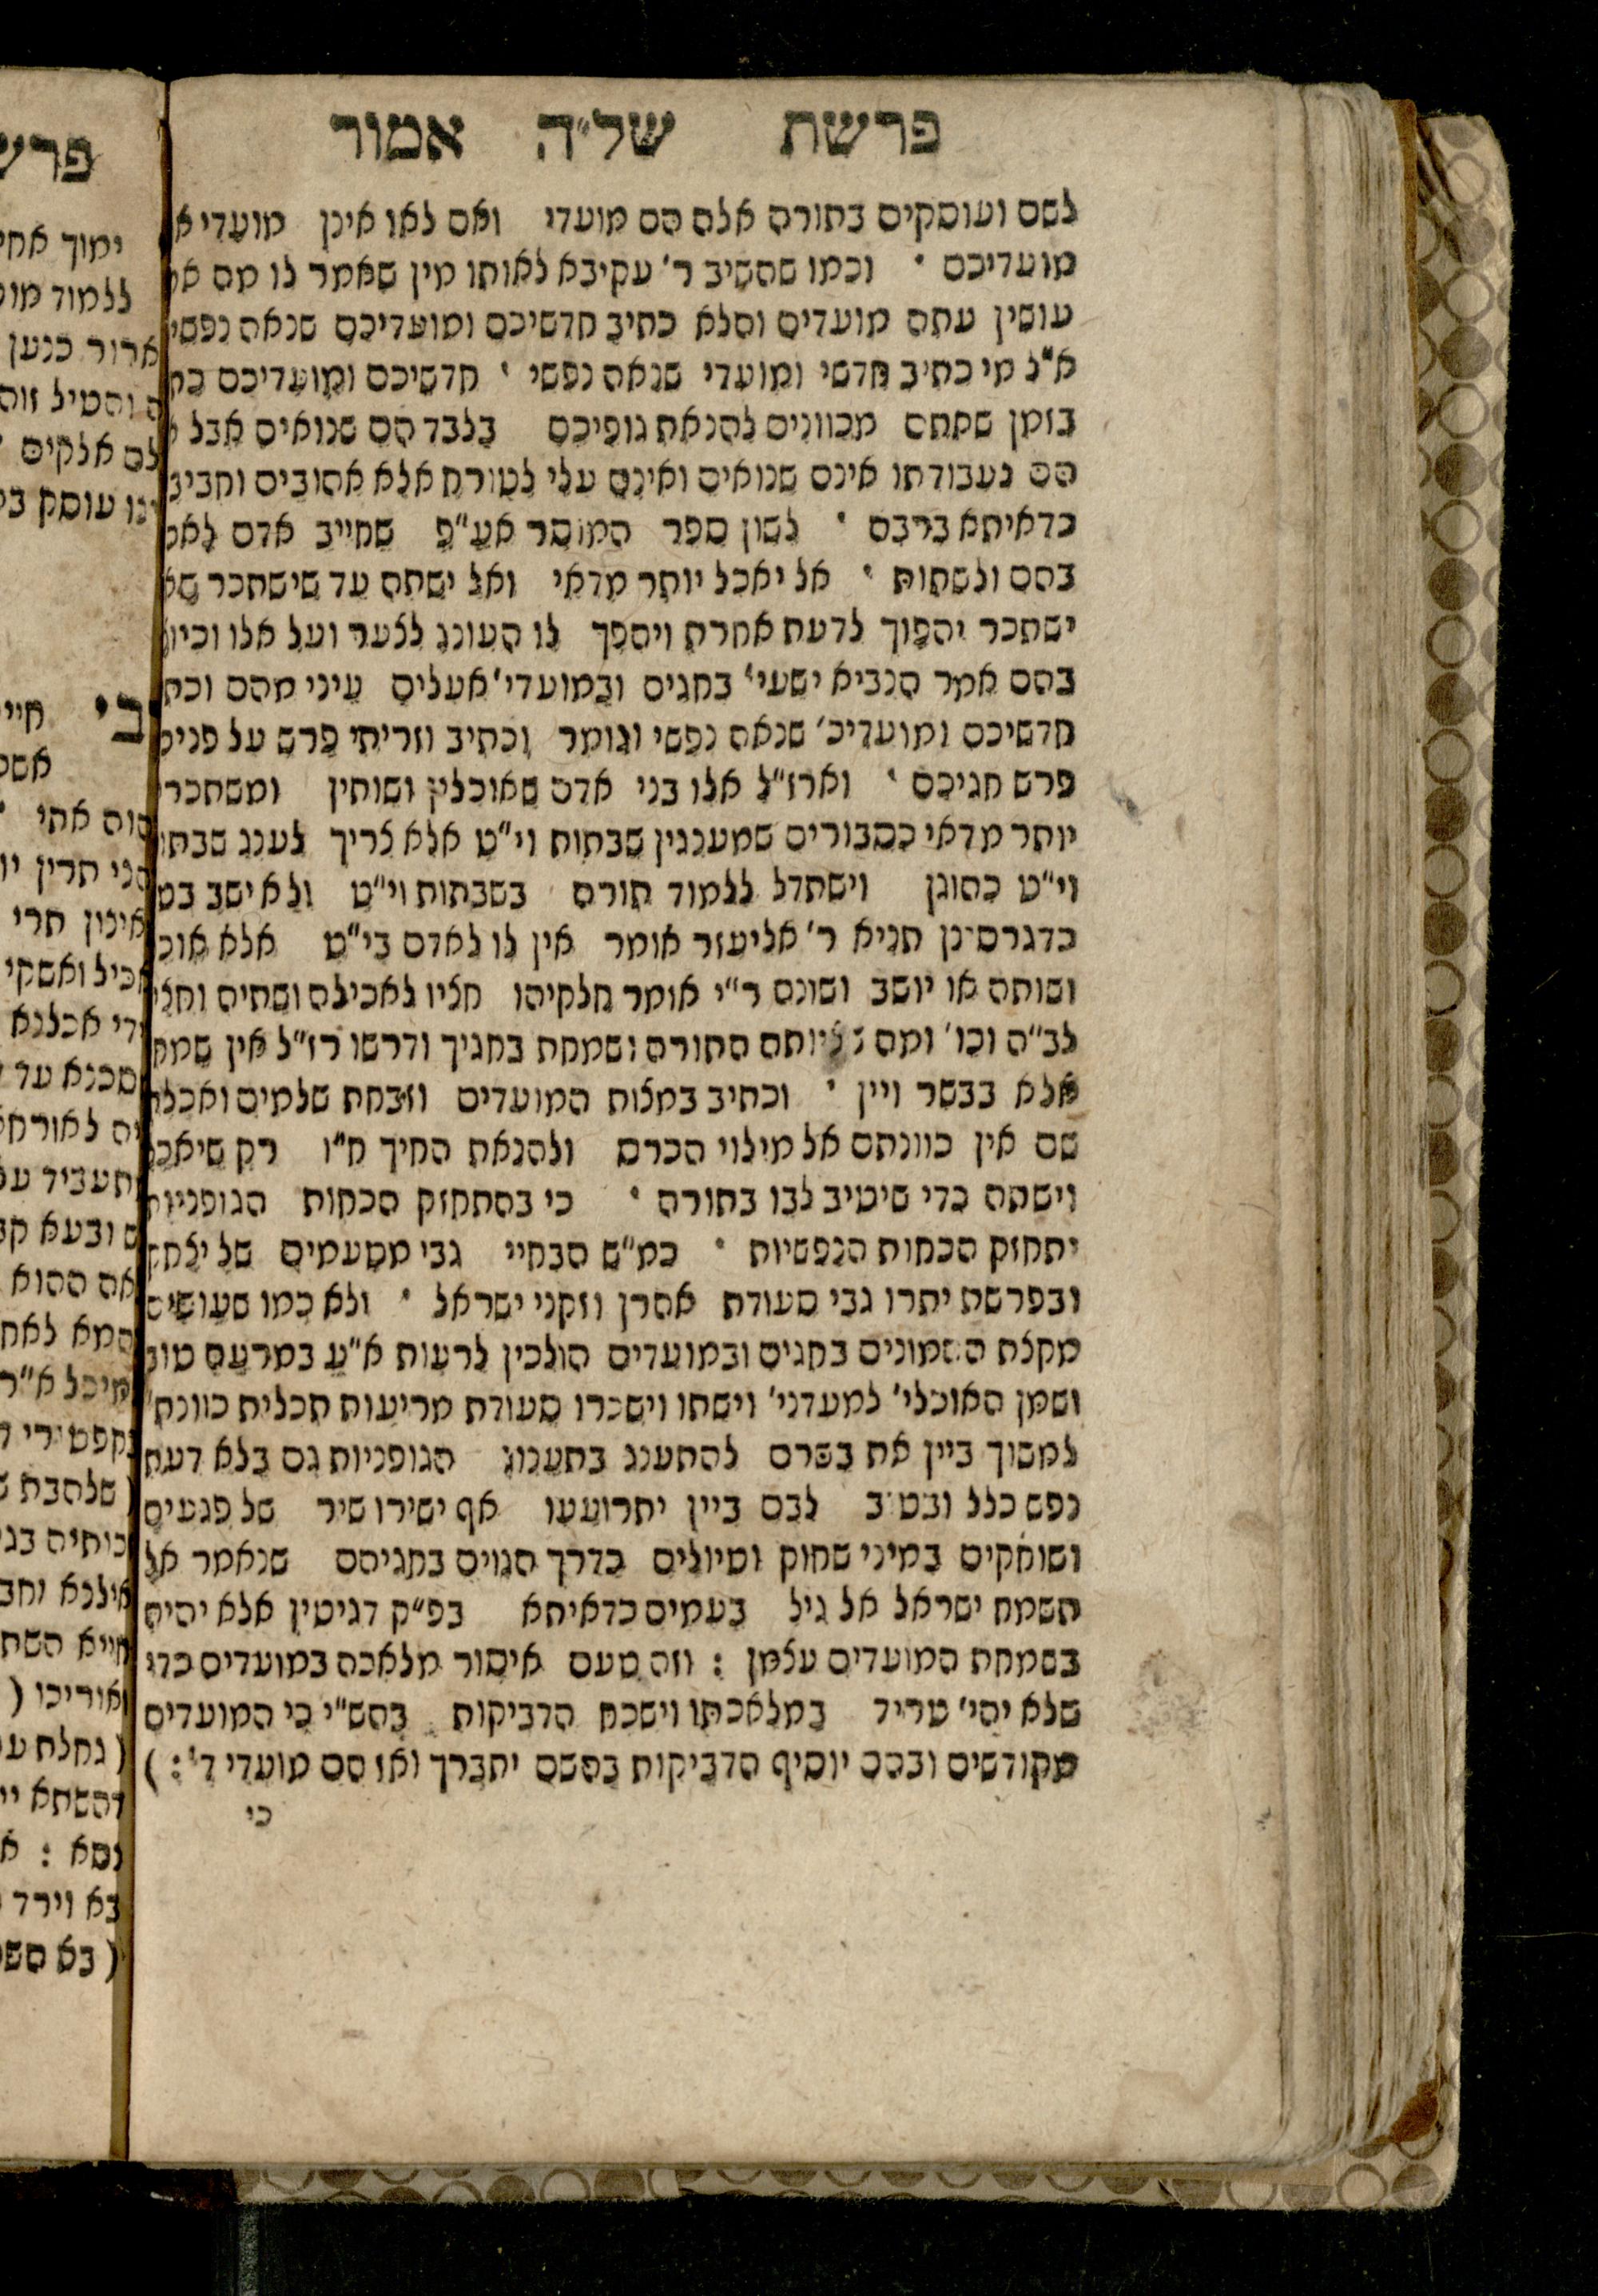 פרשת של״ה אמור
לשם ועוסקים בתורה אלה הם מועדי ואם לאו אינן מועדי א
מועדיכם • וכמו שהשיב ר׳ עקיבא לאותו מין שאמר לו מה את
עושין עתה מועדים והלא כתיב חדשיכם ומועדיכם שנאה נפשי
א״ל מי כתיב חדשי ומועדי שנאה נפשי • חדשיכם ומועדיכם כת
בזמן שאתם מכוונים להנאת גופיכם בלבד הם שנואים אבל
הם לעבודתו אינם שנואים ואינם עלי לטורח אלא אהובים וחביב
כדאיתא ברבה • לשון ספר המוסר אע״פ שחייב אדם לאכ
בהם ולשתות • אל יאכל יותר מדאי ואל ישתה עד שישתכר שא
ישתכר יהפוך לדעת אחרת ויהפך לו העונג לצער ועל אלו וכיו
בהם אמר הנביא ישעי׳ בחגים ובמועדי׳ אעלים עיני מהם וכת
חדשיכם ומועדיכ׳ שנאה נפשי וגומר וכתיב וזריתי פרש על פניכ
פרש חגיכם • וארז״ל אלו בני אדם שאוכלין ושותין ומשתכרי
יותר מדאי כסבורים שמענגין שבתות וי״ט אלא צריך לענג שבתו
וי״ט כהוגן וישתדל ללמוד תורה בשבתות וי״ט ולא ישב בט
כדגרסינן תניא ר׳ אליעזר אומר אין לו לאדם בי״ט אלא אוכ
ושותה או יושב ושונה ר״י אומר חלקיהו חציו לאכילה ושתיה וחצי
לב״ה וכו׳ ומה התורה ושמחת בחגיך ודרשו רז״ל אין שמח
אלא בבשר ויין • וכתיב במצות המועדים וזבחת שלמים ואכלת
שם אין כוונתם אל מילוי הכרס ולהנאת החיך ח״ו רק שיאכל
וישתה כדי שיטיב לבו בתורה • כי בהתחזק הכחות הגופניות
יתחזק הכחות הנפשיות • כמ״ש הבחיי גבי מטעמים של יצחק
ובפרשת יתרו גבי סעודת אהרן וזקני ישראל • ולא כמו שעושים
מקצת ההמונים בחגים ובמועדים הולכין לרעות א״ע במרעה טוב
ושמן האוכלי׳ למעדני׳ וישתו וישכרו סעודת מריעות תכלית כוונת׳
למשוך ביין את בשרם להתענג בתענוג הגופניות גם בלא דעת
נפש כלל ובטוב לבם ביין יתרועעו אף ישירו שיר של פגעים
ושוחקים במיני שחוק וטיולים כדרך הגוים בחגיהם שנאמר אל
תשמח ישראל אל גיל בעמים כדאיתא בפ״ק דגיטין אלא יהיה
בשמחת המועדים עצמן : וזה טעם איסור מלאכה במועדים כדי
שלא יהי׳ טריד במלאכתו וישכח הדביקות בהש״י כי המועדים
מקודשים ובהם יוסיף הדביקות בהשם יתברך ואז הם מועדי ד׳ : )
כי